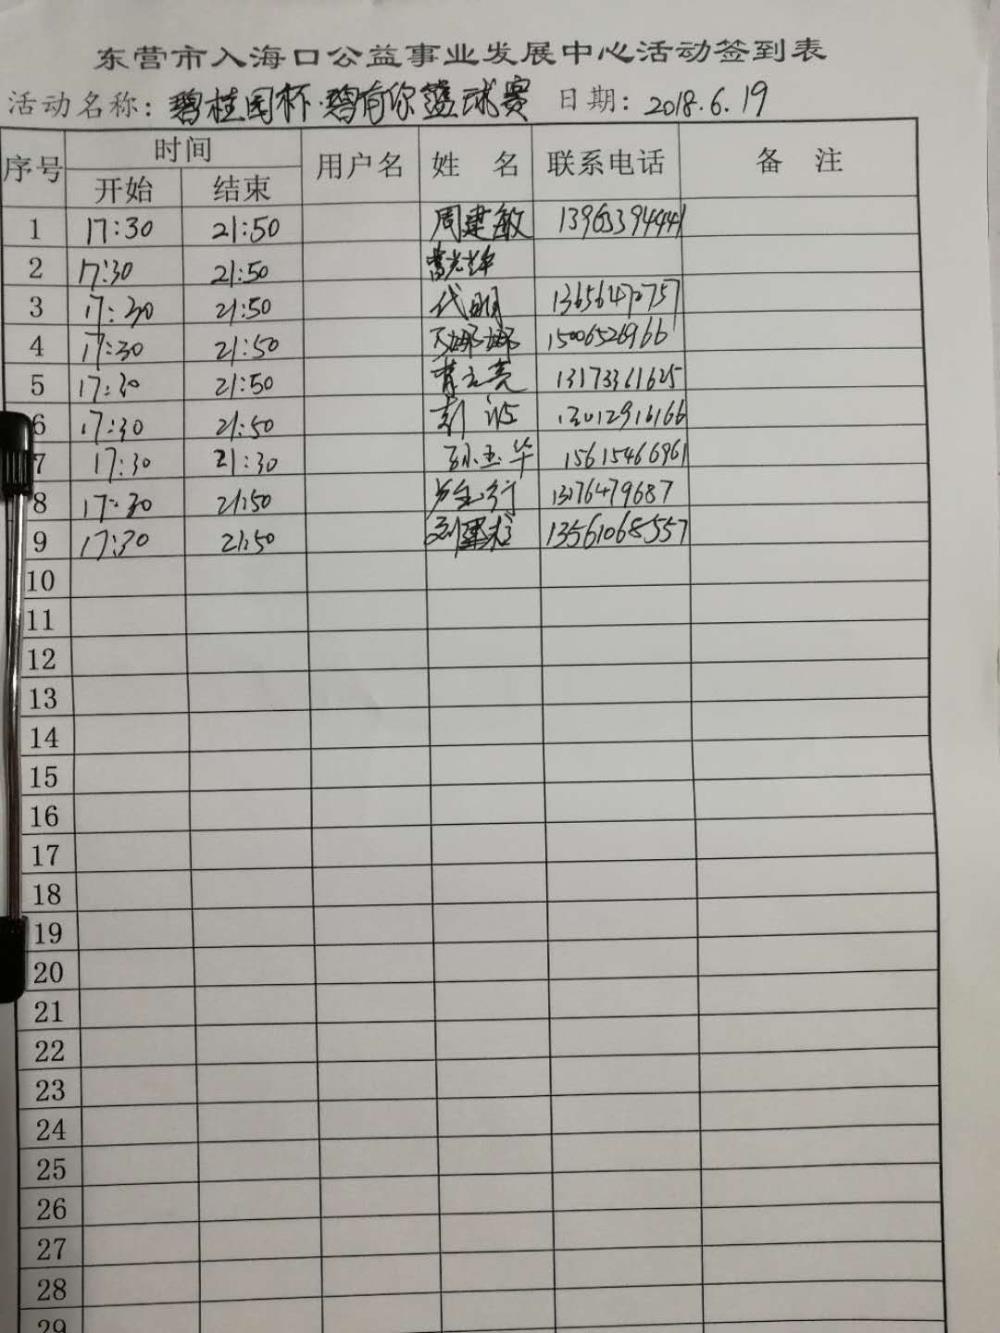 东营市入海口公益事业发展中心活动签到表
活动名称: 碧桂园杯·碧有你篮球赛 日期: 2018.6.19
序号 时间 用户名 姓 名 联系电话 备 注
开始 结束
1 17:30 21:50 周建敏 13963394441
2 17:30 21:50
3 17:30 21:50 代明 13656472757
4 17:30 21:50 15006526966
5 17:30 21:50 13173361625
6 17:30 21:50 彭 13012916166
7 17:30 21:30 孙玉华 15615466961
8 17:30 21:50 13176479687
9 17:30 21:50 13561068557
10
11
12
13
14
15
16
17
18
19
20
21
22
23
24
25
26
27
28
29